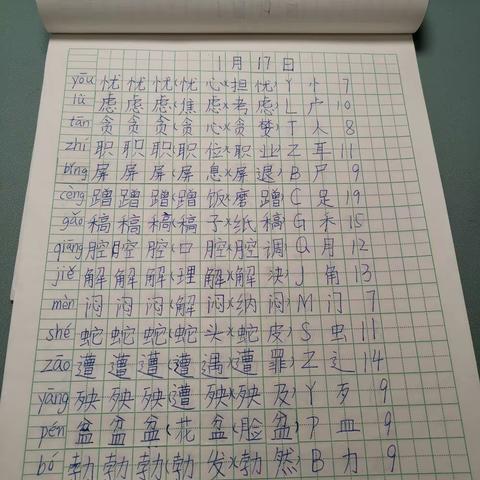 1月17日
yōu 忧 忧 忧(忧 心)(担 忧) Y 忄 7
lǜ 虑 虑 虑(焦 虑)(考 虑) L 虍 10
tān 贪 贪 贪(贪 心)(贪 婪) T 人 8
zhí 职 职 职(职 位)(职 业) Z 耳 11
bǐng 屏 屏 屏(屏 息)(屏 退) B 尸 9
cèng 蹭 蹭 蹭(蹭 饭)(磨 蹭) C 足 19
gǎo 稿 稿 稿(稿 子)(纸 稿) G 禾 15
qiāng 腔 腔 腔(口 腔)(腔 调) Q 月 12
jiě 解 解 解(理 解)(解 决) J 角 13
mèn 闷 闷 闷(解 闷)(纳 闷) M 门 7
shé 蛇 蛇 蛇(蛇 头)(蛇 皮) S 虫 11
zāo 遭 遭 遭(遭 遇)(遭 罪) Z 辶 14
yāng 殃 殃 殃(遭 殃)(殃 及) Y 歹 9
pén 盆 盆 盆(花 盆)(脸 盆) P 皿 9
bó 勃 勃 勃(勃 发)(勃 然) B 力 9